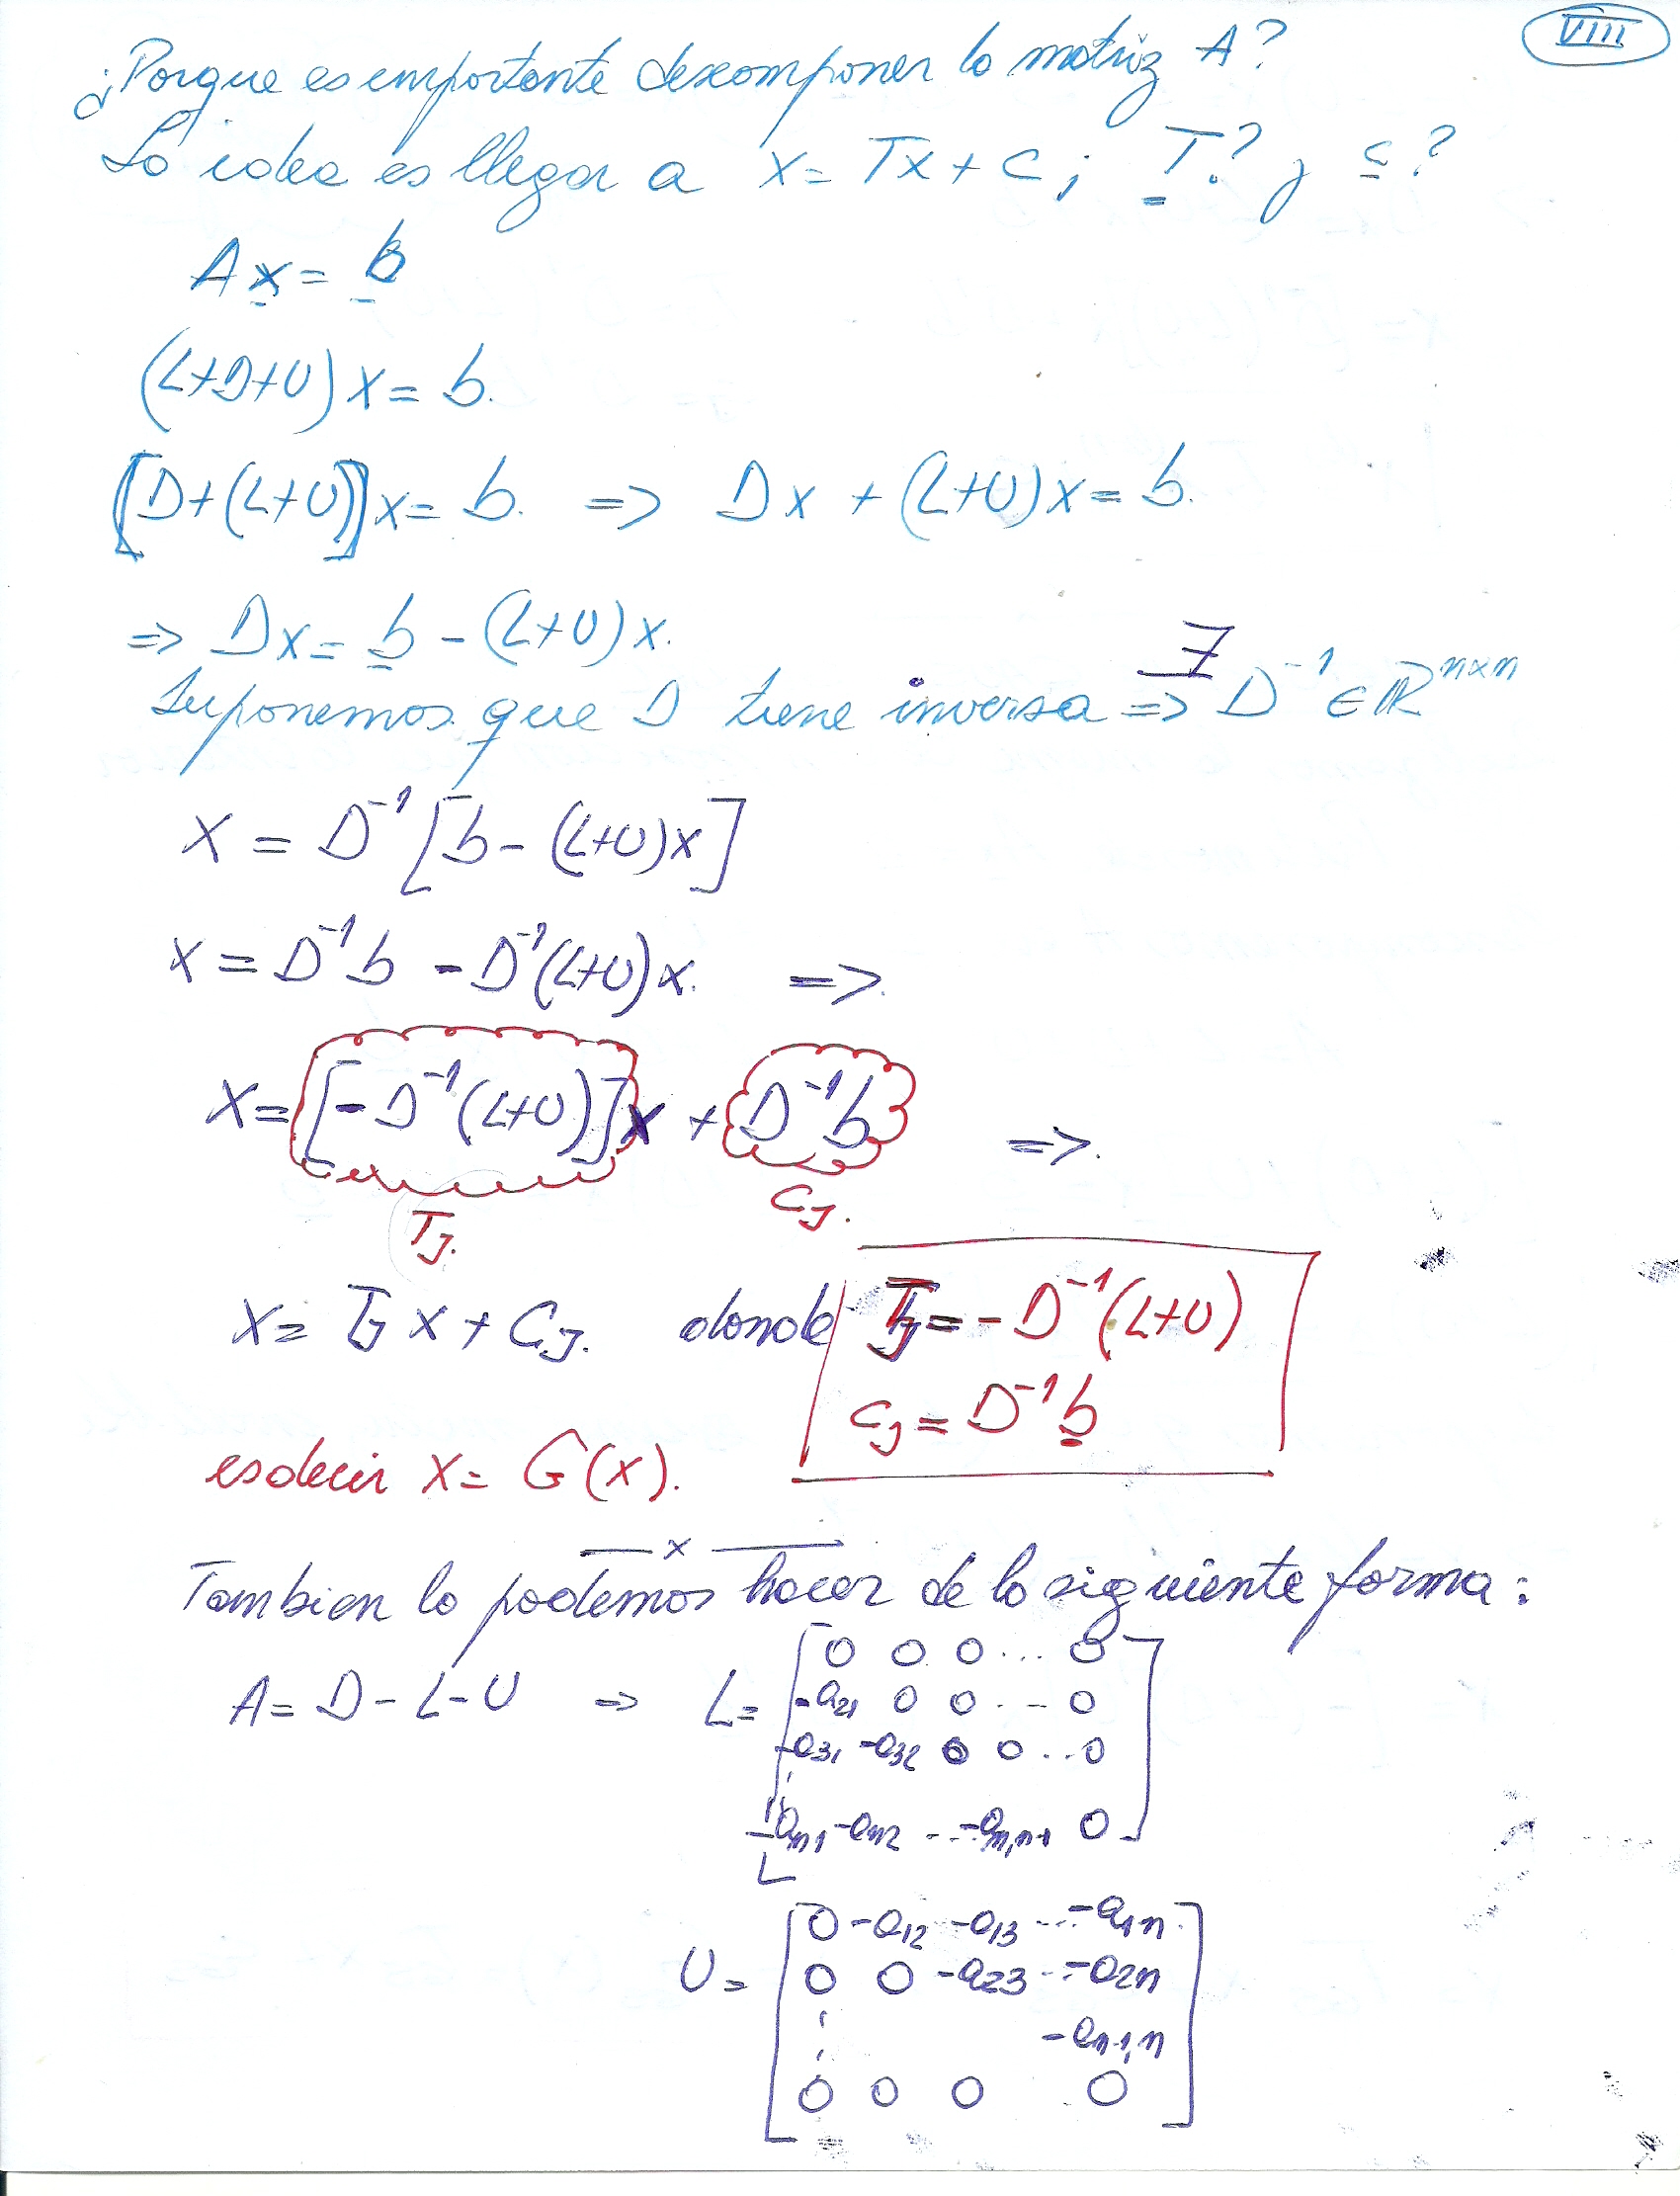 VIII
¿Porque es emportante descomponer la matriz A?
La idea es llegar a x = Tx + c ; T? y c?
Ax = b
(L+D+U)x = b.
[D+(L+U)]x = b. => Dx + (L+U)x = b.
=> Dx = b - (L+U)x.
Suponemos que D tiene inversa => ∃ D⁻¹ ∈ ℝⁿˣⁿ
x = D⁻¹[b - (L+U)x]
x = D⁻¹b - D⁻¹(L+U)x. =>.
x = [-D⁻¹(L+U)]x + D⁻¹b =>.
TJ. CJ.
x = TJ x + CJ. donde TJ = -D⁻¹(L+U)
CJ = D⁻¹b
es decir x = G(x).
— x —
Tambien lo podemos hacer de la siguiente forma:
A = D - L - U => L = [0 0 0 ... 0
-a21 0 0 .. - 0
-a31 -a32 0 0 .. 0
-an1 -an2 ... -an,n-1 0]
U = [0 -a12 -a13 ... -a1n
0 0 -a23 ... -a2n
-an-1,n
0 0 0 0]